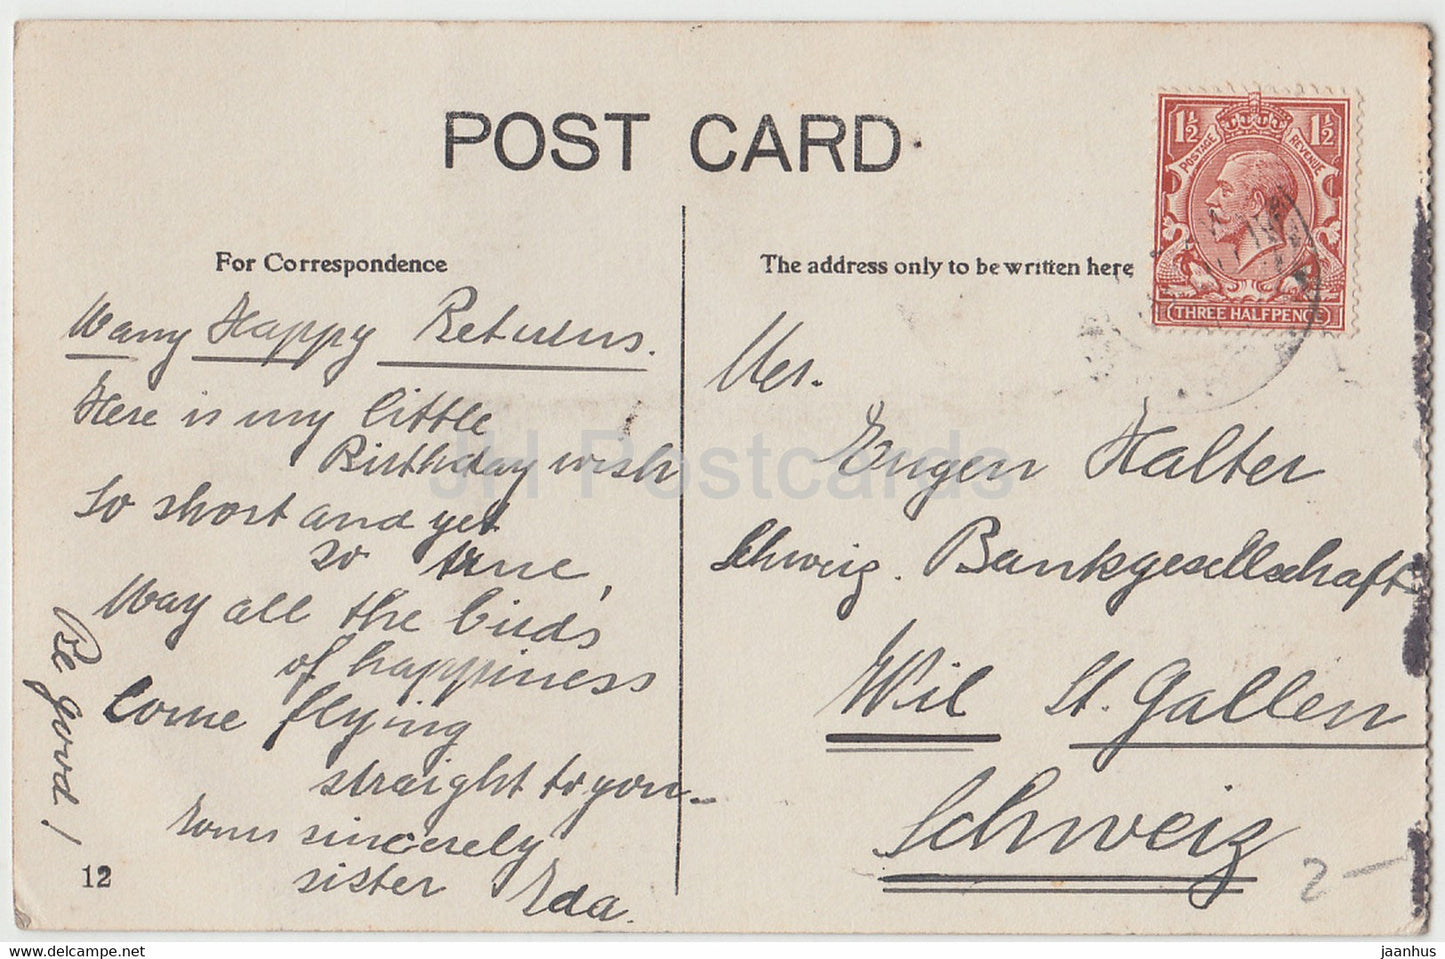 POST CARD
For Correspondence
The address only to be written here
1½ 1½
POSTAGE REVENUE
THREE HALFPENCE
Many Happy Returns.
Here is my little
Birthday wish
So short and yet
so true,
May all the birds
of happiness
Come flying
straight to you_
Yours sincerely
sister Ida.
Be good!
12
Eugen Halter
Schweiz. Bankgesellschaft
Wil St. Gallen
Schweiz
2-
JH Postcards
www.delcampe.net
jaanhus